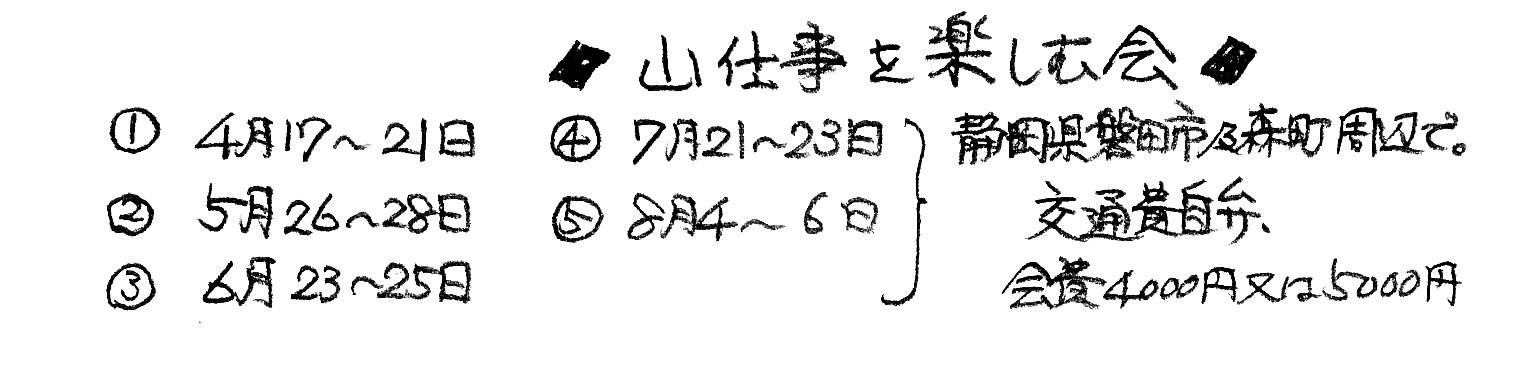 ◆ 山仕事を楽しむ会 ◆
① 4月17～21日
② 5月26～28日
③ 6月23～25日
④ 7月21～23日
⑤ 8月4～6日
静岡県磐田市及森町周辺で。
交通費自弁、
会費4000円又は5000円